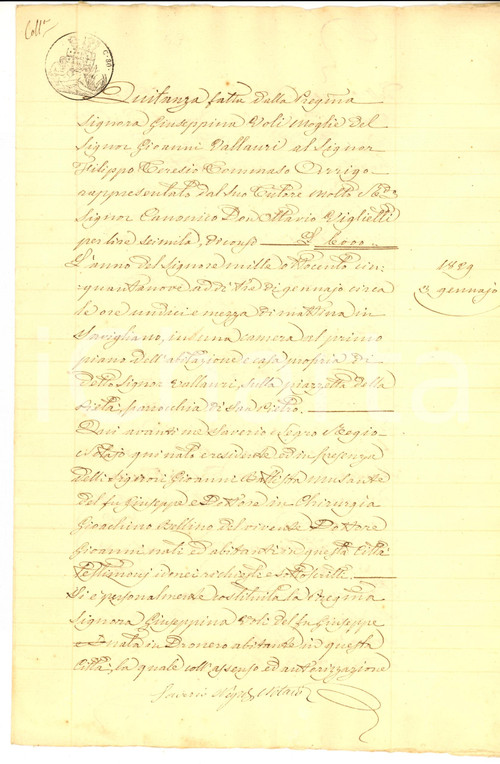 Coll.ta
Quitanza fatta dalla Preg.ma
Signora Giuseppina Voli moglie del
Signor Giovanni Vallauri al Signor
Filippo Teresio Tommaso Orrigo
rappresentato dal suo Tutore molto
Signor Canonico Don Ottavio Viglietti
per lire seimila, dicensi L. 6000.
L'anno del Signore mille ottocento cin:
quantanove ad di tre di gennajo circa
le ore undeci e mezza di mattina in
Savigliano, in una camera al primo
piano dell'abitazione e casa propria di
detto Signor Vallauri, sulla piazzetta della
Pietà, parrocchia di San Pietro.
1859
3 gennajo
Qui avanti me Saverio Negro Regio
Notajo qui nato e residente ed in presenza
delli Signori, Giovanni Battista
del fu Giuseppe e Dottore in Chirurgia
Gioachino Bellino del vivente Dottore
Giovanni nati ed abitanti in questa Città
Testimonj idonei richiesti e sottoscritti.
Si è personalmente costituita la Preg.ma
Signora Giuseppina Voli del fu Giuseppe
nata in Dronero abitante in questa
Città, la quale coll'assenso ed autorizzazione
Saverio Negro Notajo